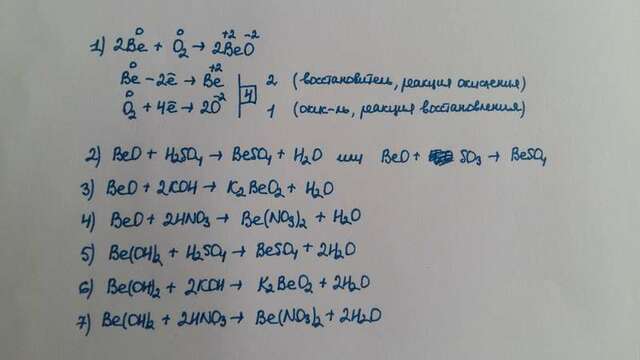 1) 2Be⁰ + O₂⁰ → 2Be⁺²O⁻²
Be⁰ - 2ē → Be⁺² | 4 | 2 (восстановитель, реакция окисления)
O₂⁰ + 4ē → 2O⁻² | 1 (окис-ль, реакция восстановления)
2) BeO + H₂SO₄ → BeSO₄ + H₂O или BeO + SO₃ → BeSO₄
3) BeO + 2KOH → K₂BeO₂ + H₂O
4) BeO + 2HNO₃ → Be(NO₃)₂ + H₂O
5) Be(OH)₂ + H₂SO₄ → BeSO₄ + 2H₂O
6) Be(OH)₂ + 2KOH → K₂BeO₂ + 2H₂O
7) Be(OH)₂ + 2HNO₃ → Be(NO₃)₂ + 2H₂O